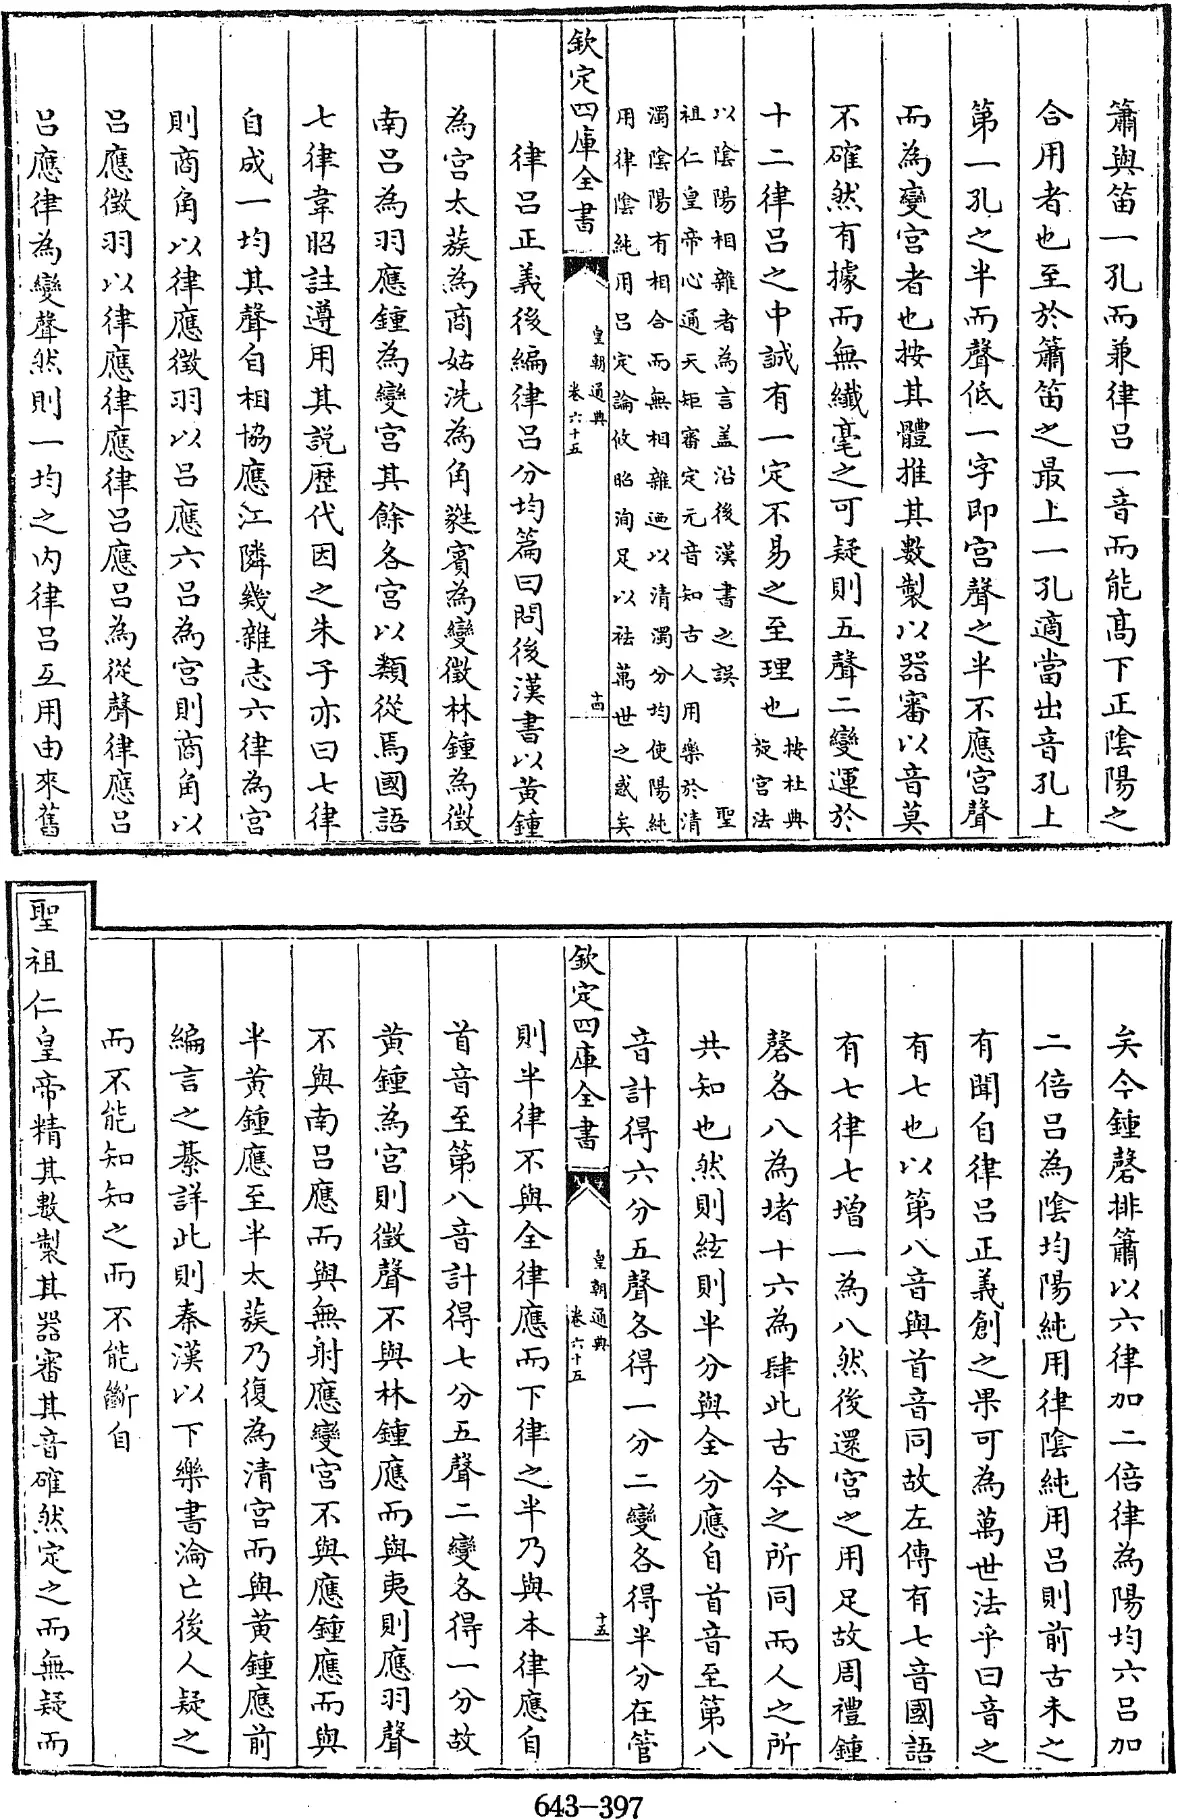 簫與笛一孔而兼律吕一音而能髙下正陰陽之
合用者也至於簫笛之最上一孔適當出音孔上
第一孔之半而聲低一字即宫聲之半不應宫聲
而為變宫者也按其體推其數製以器審以音莫
不確然有據而無纎毫之可疑則五聲二變運於
十二律吕之中誠有一定不易之至理也按杜典
旋宫法
以陰陽相雜者為言盖沿後漢書之誤聖
祖仁皇帝心通天矩審定元音知古人用樂於清
濁陰陽有相合而無相雜廼以清濁分均使陽純
用律陰純用吕定論攸昭洵足以祛萬世之惑矣
欽定四庫全書
皇朝通典
卷六十五
十四
律吕正義後編律吕分均篇曰問後漢書以黄鍾
為宫太蔟為商姑洗為角蕤賓為變徵林鍾為徵
南吕為羽應鍾為變宫其餘各宫以類從焉國語
七律韋昭註遵用其説歴代因之朱子亦曰七律
自成一均其聲自相協應江隣幾雜志六律為宫
則商角以律應徵羽以吕應六吕為宫則商角以
吕應徵羽以律應律應律吕應吕為從聲律應吕
吕應律為變聲然則一均之内律吕互用由來舊
矣今鍾磬排簫以六律加二倍律為陽均六吕加
二倍吕為陰均陽純用律陰純用吕則前古未之
有聞自律吕正義創之果可為萬世法乎曰音之
有七也以第八音與首音同故左傳有七音國語
有七律七增一為八然後還宫之用足故周禮鍾
磬各八為堵十六為肆此古今之所同而人之所
共知也然則絃則半分與全分應自首音至第八
音計得六分五聲各得一分二變各得半分在管
欽定四庫全書
皇朝通典
卷六十五
十五
則半律不與全律應而下律之半乃與本律應自
首音至第八音計得七分五聲二變各得一分故
黄鍾為宫則徵聲不與林鍾應而與夷則應羽聲
不與南吕應而與無射應變宫不與應鍾應而與
半黄鍾應至半太蔟乃復為清宫而與黄鍾應前
編言之綦詳此則秦漢以下樂書淪亡後人疑之
而不能知知之而不能斷自
聖祖仁皇帝精其數製其器審其音確然定之而無疑而
643-397